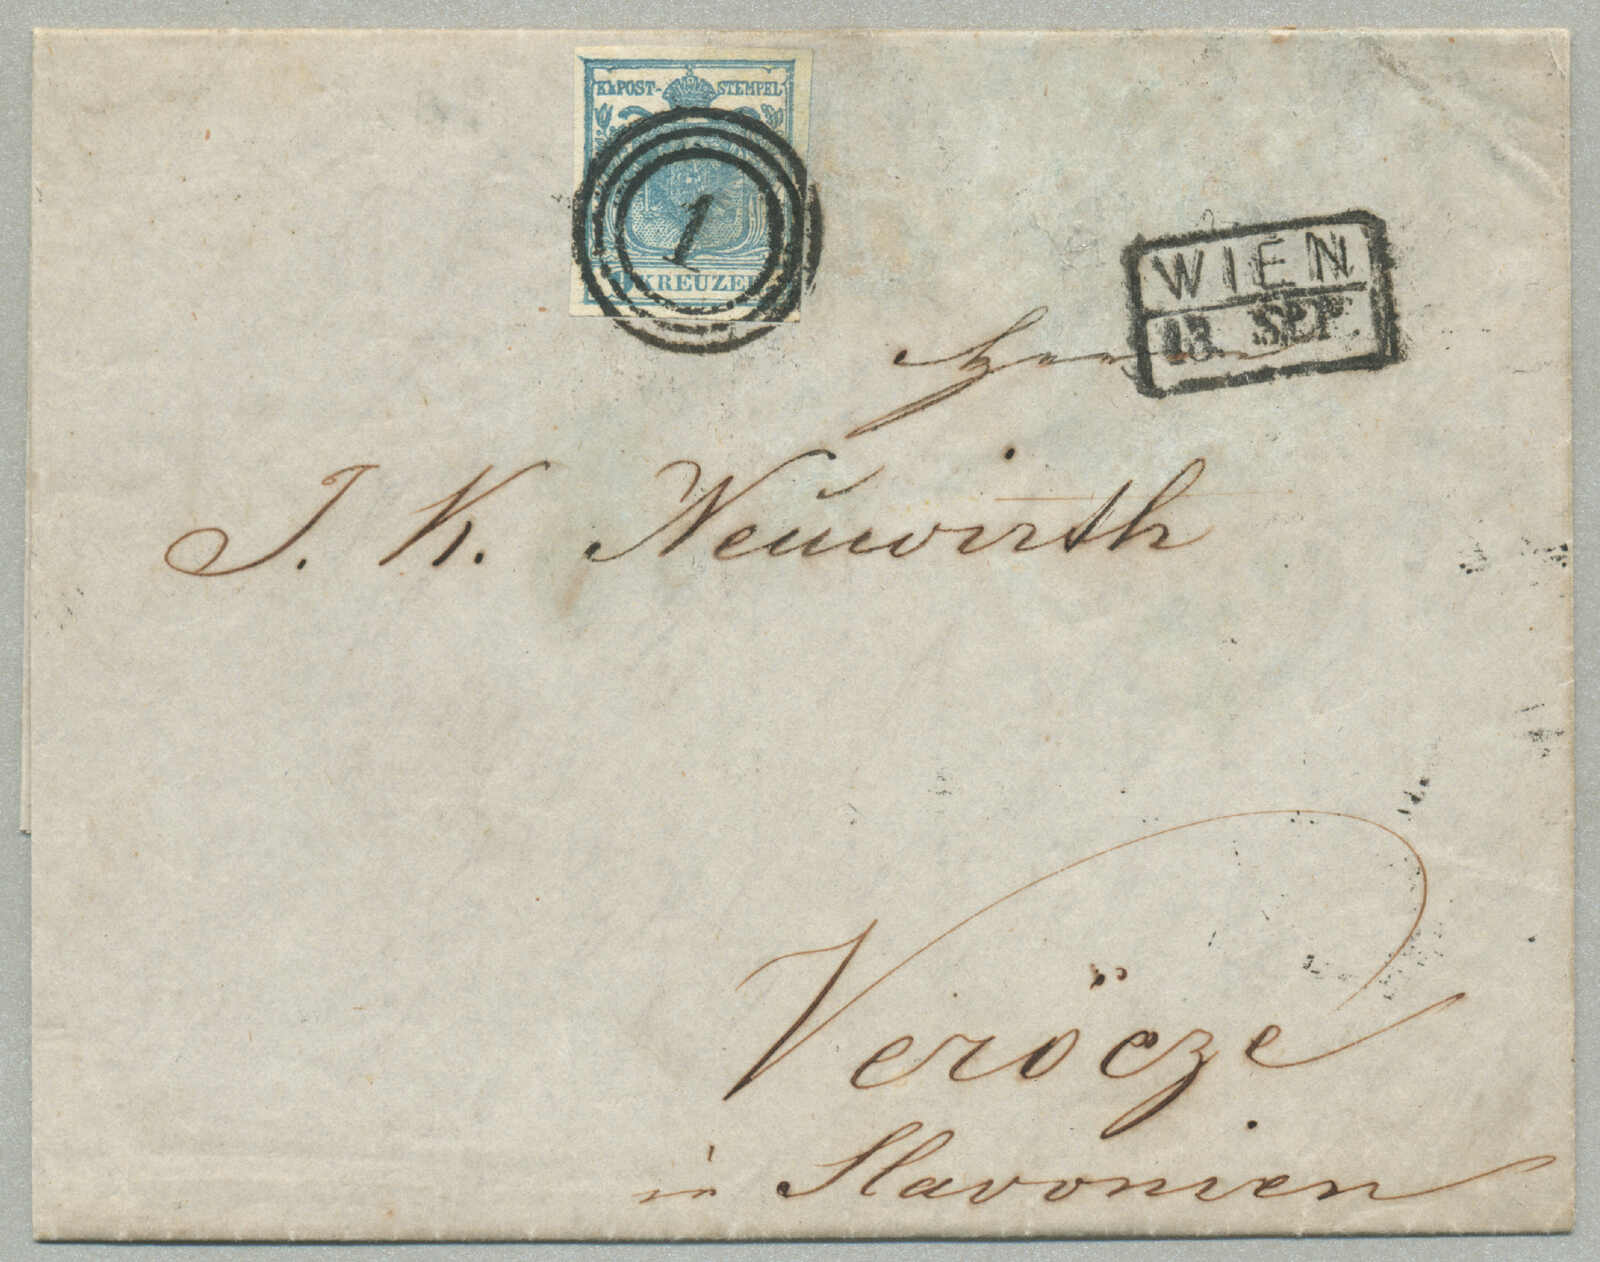 KK POST-STEMPEL
9 KREUZER
1
WIEN
13. SEP.
Herrn
J. K. Neŭwirth
Veröcze
in Slavonien